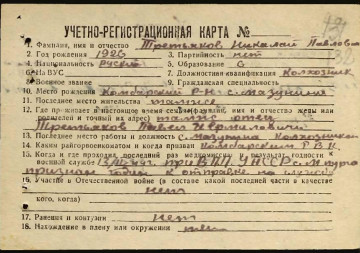 УЧЕТНО-РЕГИСТРАЦИОННАЯ КАРТА №
1. Фамилия, имя и отчество Третьяков Николай Павлович
2. Год рождения 1926 3. Партийность нет
4. Национальность русский 5. Образование 6
6. На ВУС 7. Должностная квалификация Колхозник
8. Военное звание 9. Гражданская специальность
10. Место рождения Камбарский р-н с. Мазунино
11. Последнее место жительства
12. Где проживает в настоящее время семья (фамилия, имя и отчество жены или
родителей и точный их адрес) там же отец
Третьяков Павел
13. Последнее место работы и должность с. Мазунино Колхозник
14. Каким райгорвоенкоматом и когда призван Камбарским РВК
15. Когда и где проходил последний раз медкомиссию и результат годности к
военной службе при ВПП
признан годен к отправке на службу
16. Участие в Отечественной войне (в составе какой последней части в качестве
кого, когда) нет
17. Ранения и контузии нет
18. Нахождение в плену или окружении нет